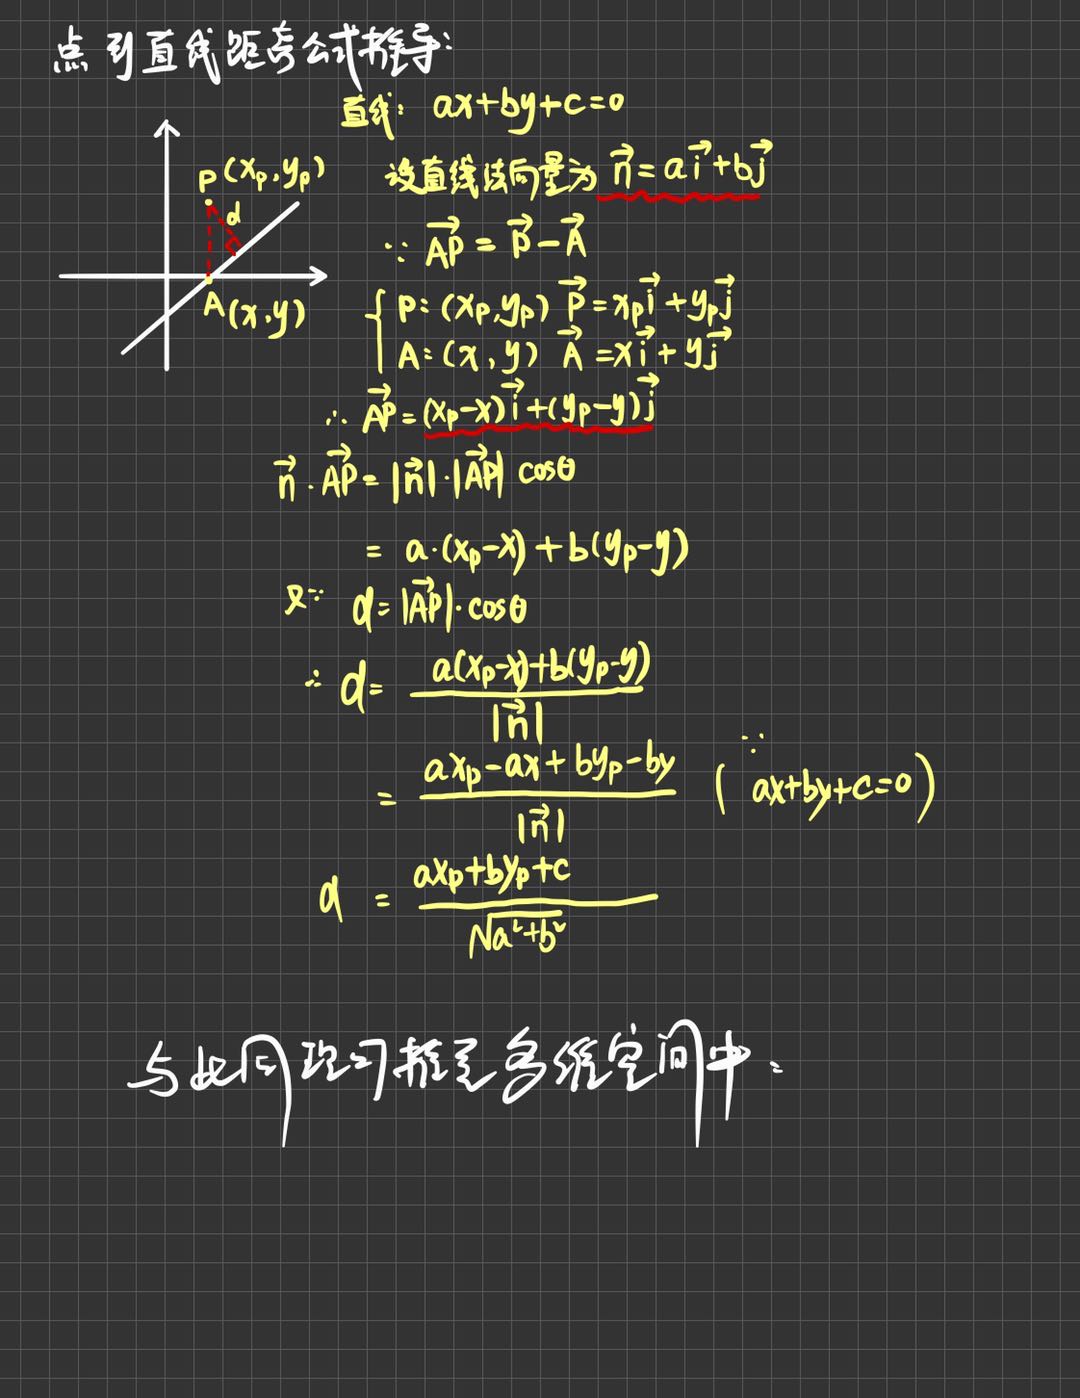 点到直线距离公式推导:
直线: ax+by+c=0
P(xₚ,yₚ)
d
A(x,y)
设直线法向量为 n⃗=ai⃗+bj⃗
∵ AP⃗=P⃗-A⃗
P:(xₚ,yₚ) P⃗=xₚi⃗+yₚj⃗
A:(x,y) A⃗=xi⃗+yj⃗
∴ AP⃗=(xₚ-x)i⃗+(yₚ-y)j⃗
n⃗·AP⃗=|n⃗|·|AP⃗| cosθ
= a·(xₚ-x)+b(yₚ-y)
又∵ d=|AP⃗|·cosθ
∴ d= a(xₚ-x)+b(yₚ-y) / |n⃗|
= axₚ-ax+byₚ-by / |n⃗| (∵ ax+by+c=0)
d = axₚ+byₚ+c / √a²+b²
与此同理可推至多维空间中: